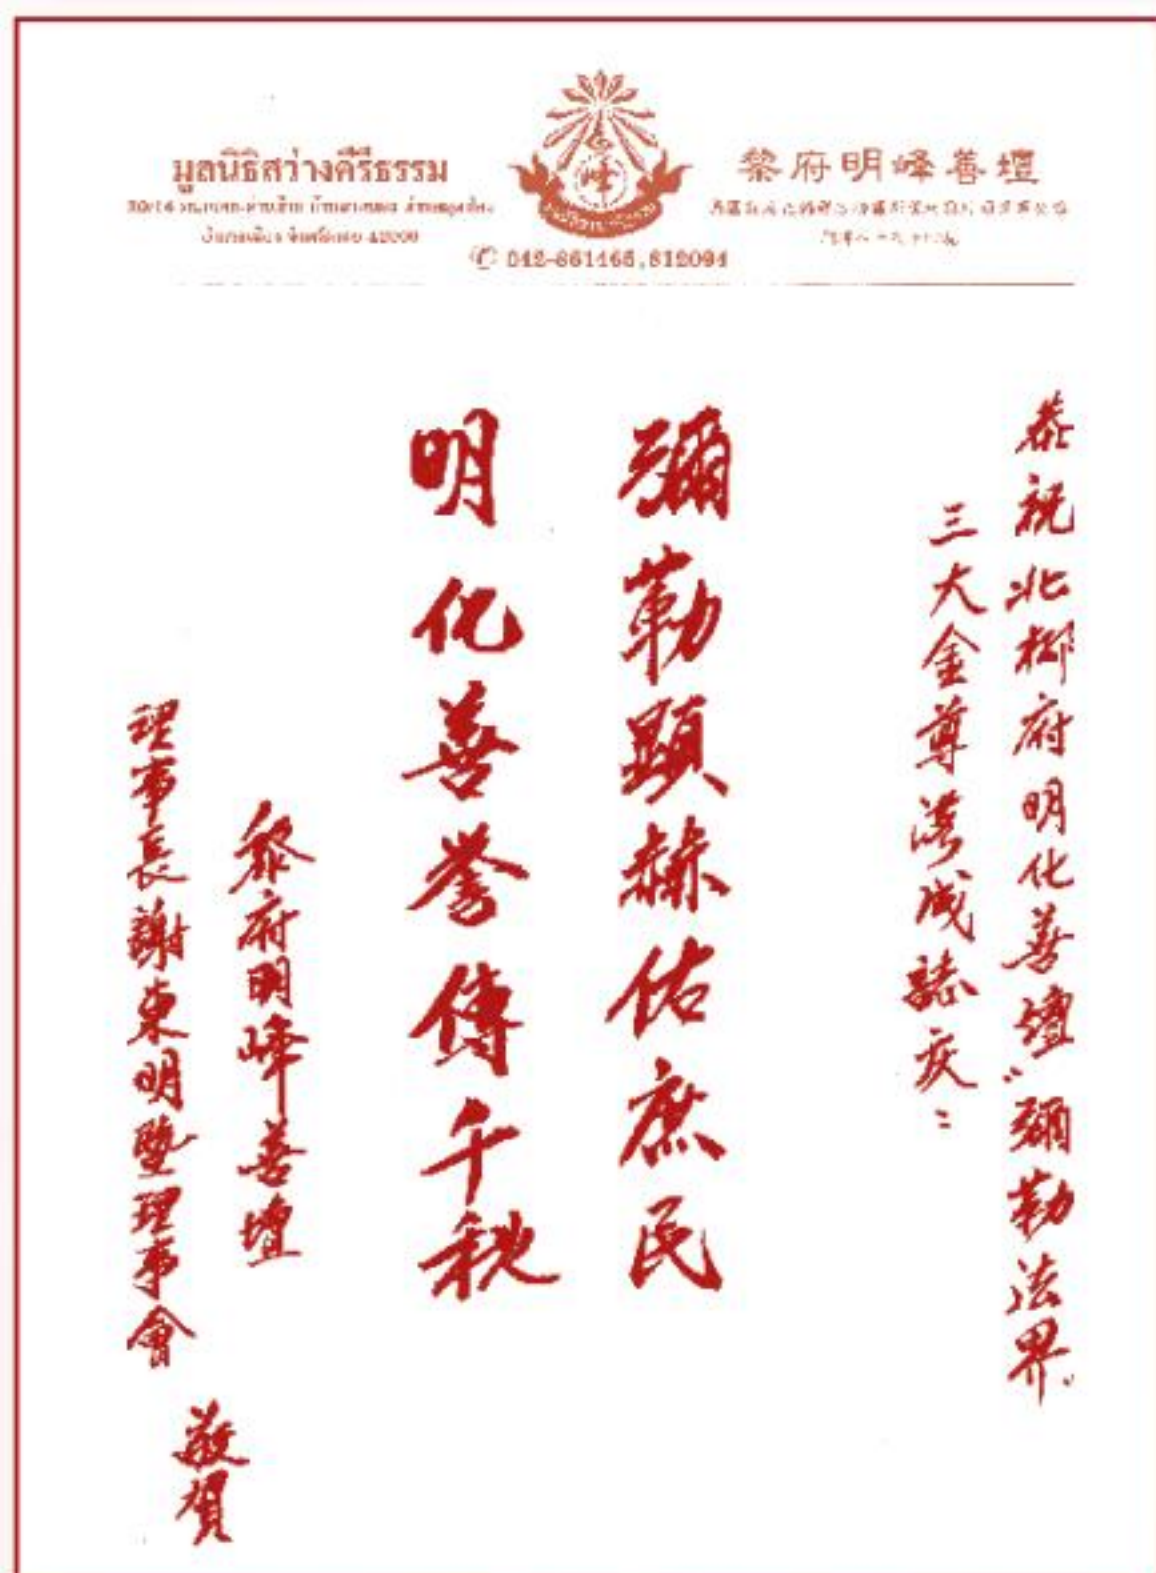 มูลนิธิสว่างคีรีธรรม
黎府明峰善壇
042-861165,812094
恭祝北柳府明化善壇"彌勒法界"
三大金尊落成誌庆:
彌勒顯赫佑庶民
明化善誉傳千秋
黎府明峰善壇
理事長謝東明暨理事會
敬賀